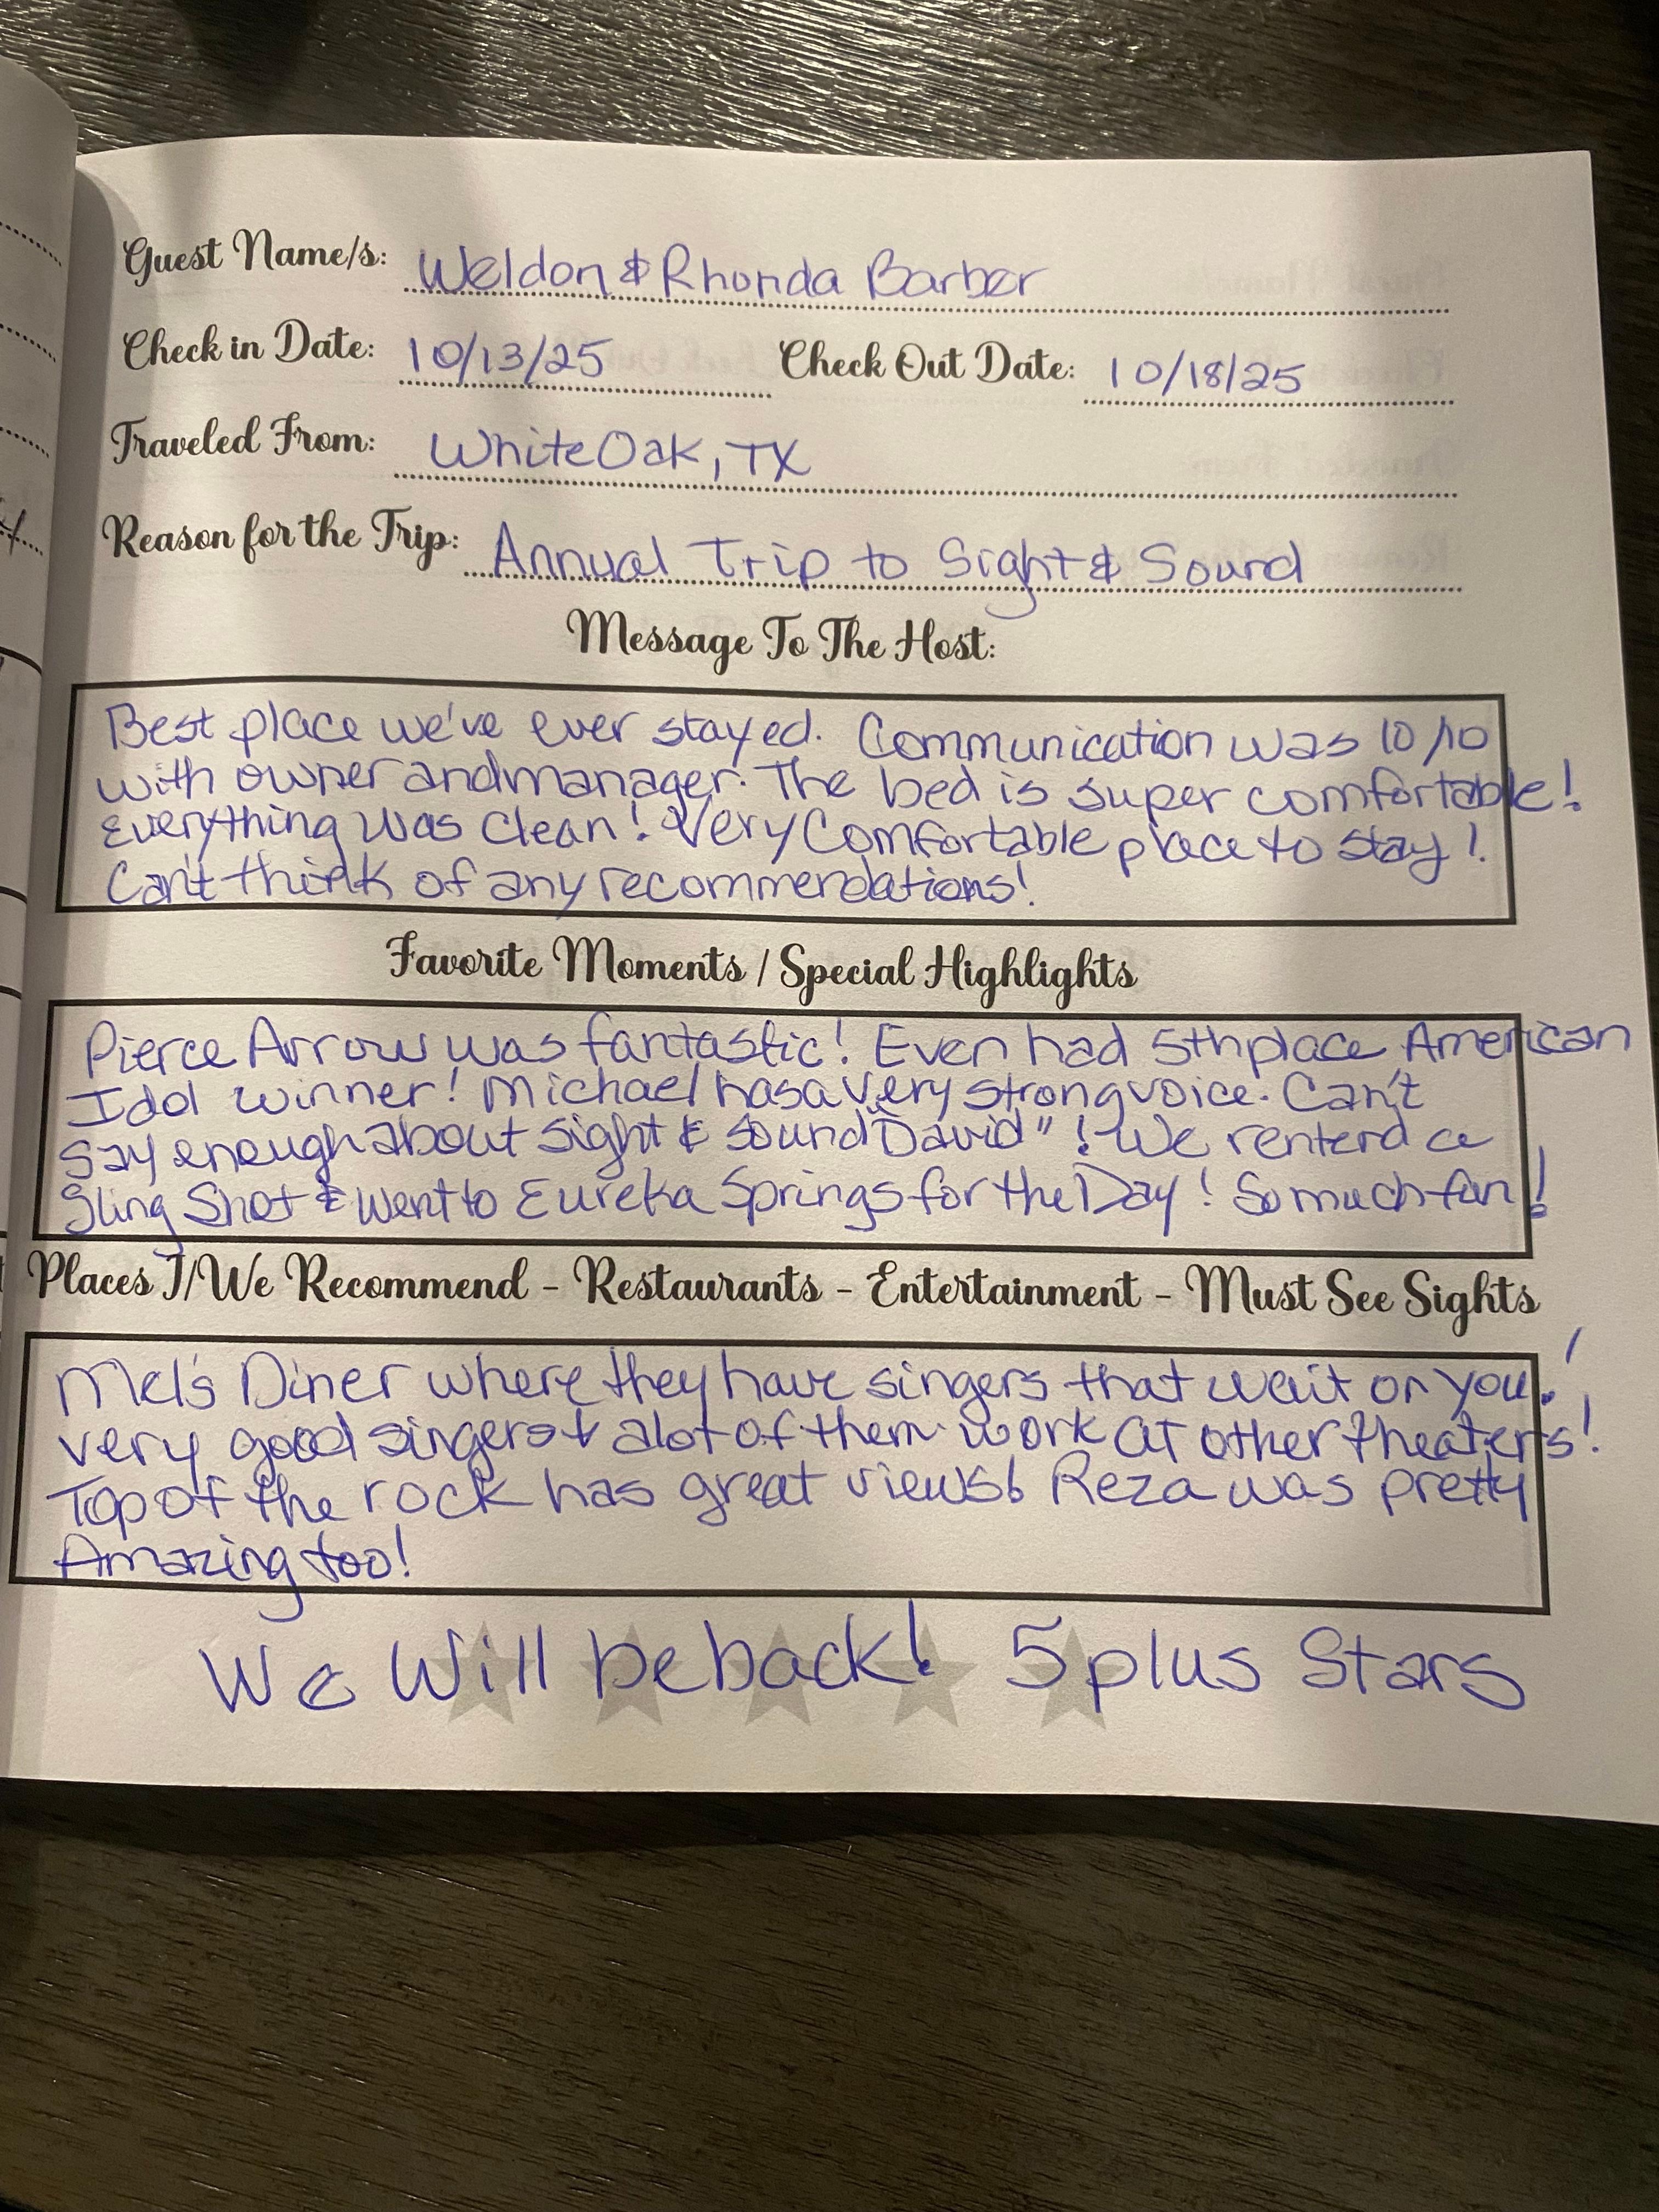 Guest Name/s: Weldon & Rhonda Barber
Check in Date: 10/13/25 Check Out Date: 10/18/25
Traveled From: White Oak, TX
Reason for the Trip: Annual Trip to Sight & Sound
Message To The Host:
Best place we've ever stayed. Communication was 10/10
with owner and manager. The bed is super comfortable!
Everything was clean! Very Comfortable place to stay!
Can't think of any recommendations!
Favorite Moments / Special Highlights
Pierce Arrow was fantastic! Even had 5th place American
Idol winner! Michael has a very strong voice. Can't
say enough about Sight & Sound "David"! We renterd a
Sling Shot & went to Eureka Springs for the Day! So much fun!
Places I/We Recommend - Restaurants - Entertainment - Must See Sights
Mel's Diner where they have singers that wait on you!
Very good singers & alot of them work at other theaters!
Top of the rock has great views! Reza was pretty
Amazing too!
We Will be back! 5 plus Stars